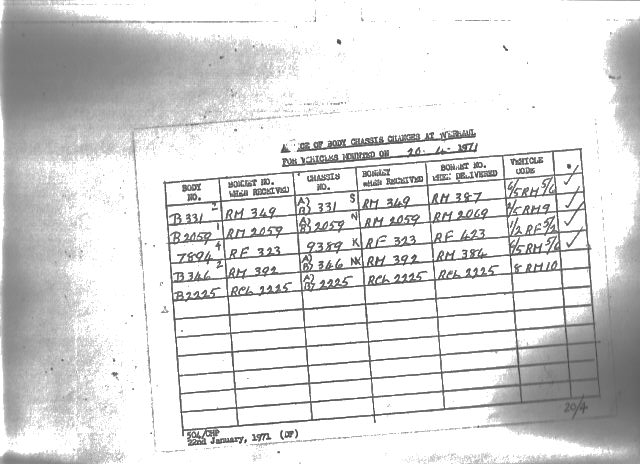 OF BODY CHASSIS CHANGES AT
FOR VEHICLES MOUNTED ON 20-4-1971
BODY NO. BONNET NO. WHEN RECEIVED CHASSIS NO. BONNET WHEN RECEIVED BONNET NO. WHEN DELIVERED VEHICLE CODE
B331 2 RM 349 A) B) 331 S RM 349 RM 387 6/5RM 5/6 ✓
B2059 1 RM 2059 A) B) 2059 N RM 2059 RM 2069 5RM9 ✓
7894 4 RF 323 9389 K RF 323 RF 423 1/2 RF 5/2 ✓
B346 2 RM 392 A) B) 346 NK RM 392 RM 384 6/5 RM 5/6 ✓
B2225 RCL 2225 A) B) 2225 RCL 2225 RCL 2225 8 RM10
20/4
504/CHP
22nd January, 1971 (OF)